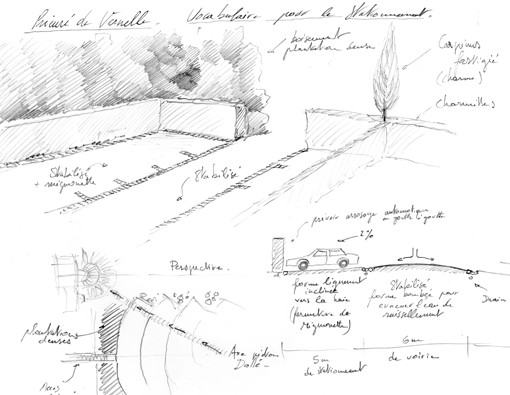 Prieuré de Vauelle. Vocabulaire pour le Stationnement.
boisement
plantation dense
Carpinus
fastigié
(charme)
charmilles
Stabilisé
+ mignonette
Stabilisé
prévoir arrosage automatique
ou goutte à goutte
2%
Perspective.
forme légèrement
inclinée
vers la haie
(formation de
Mignonette)
Stabilisé
forme bombée pour
évacuer l'eau de
ruissellement
Drain
plantations
denses
Axe
Dallé
6m
de voirie
5m
de stationnement